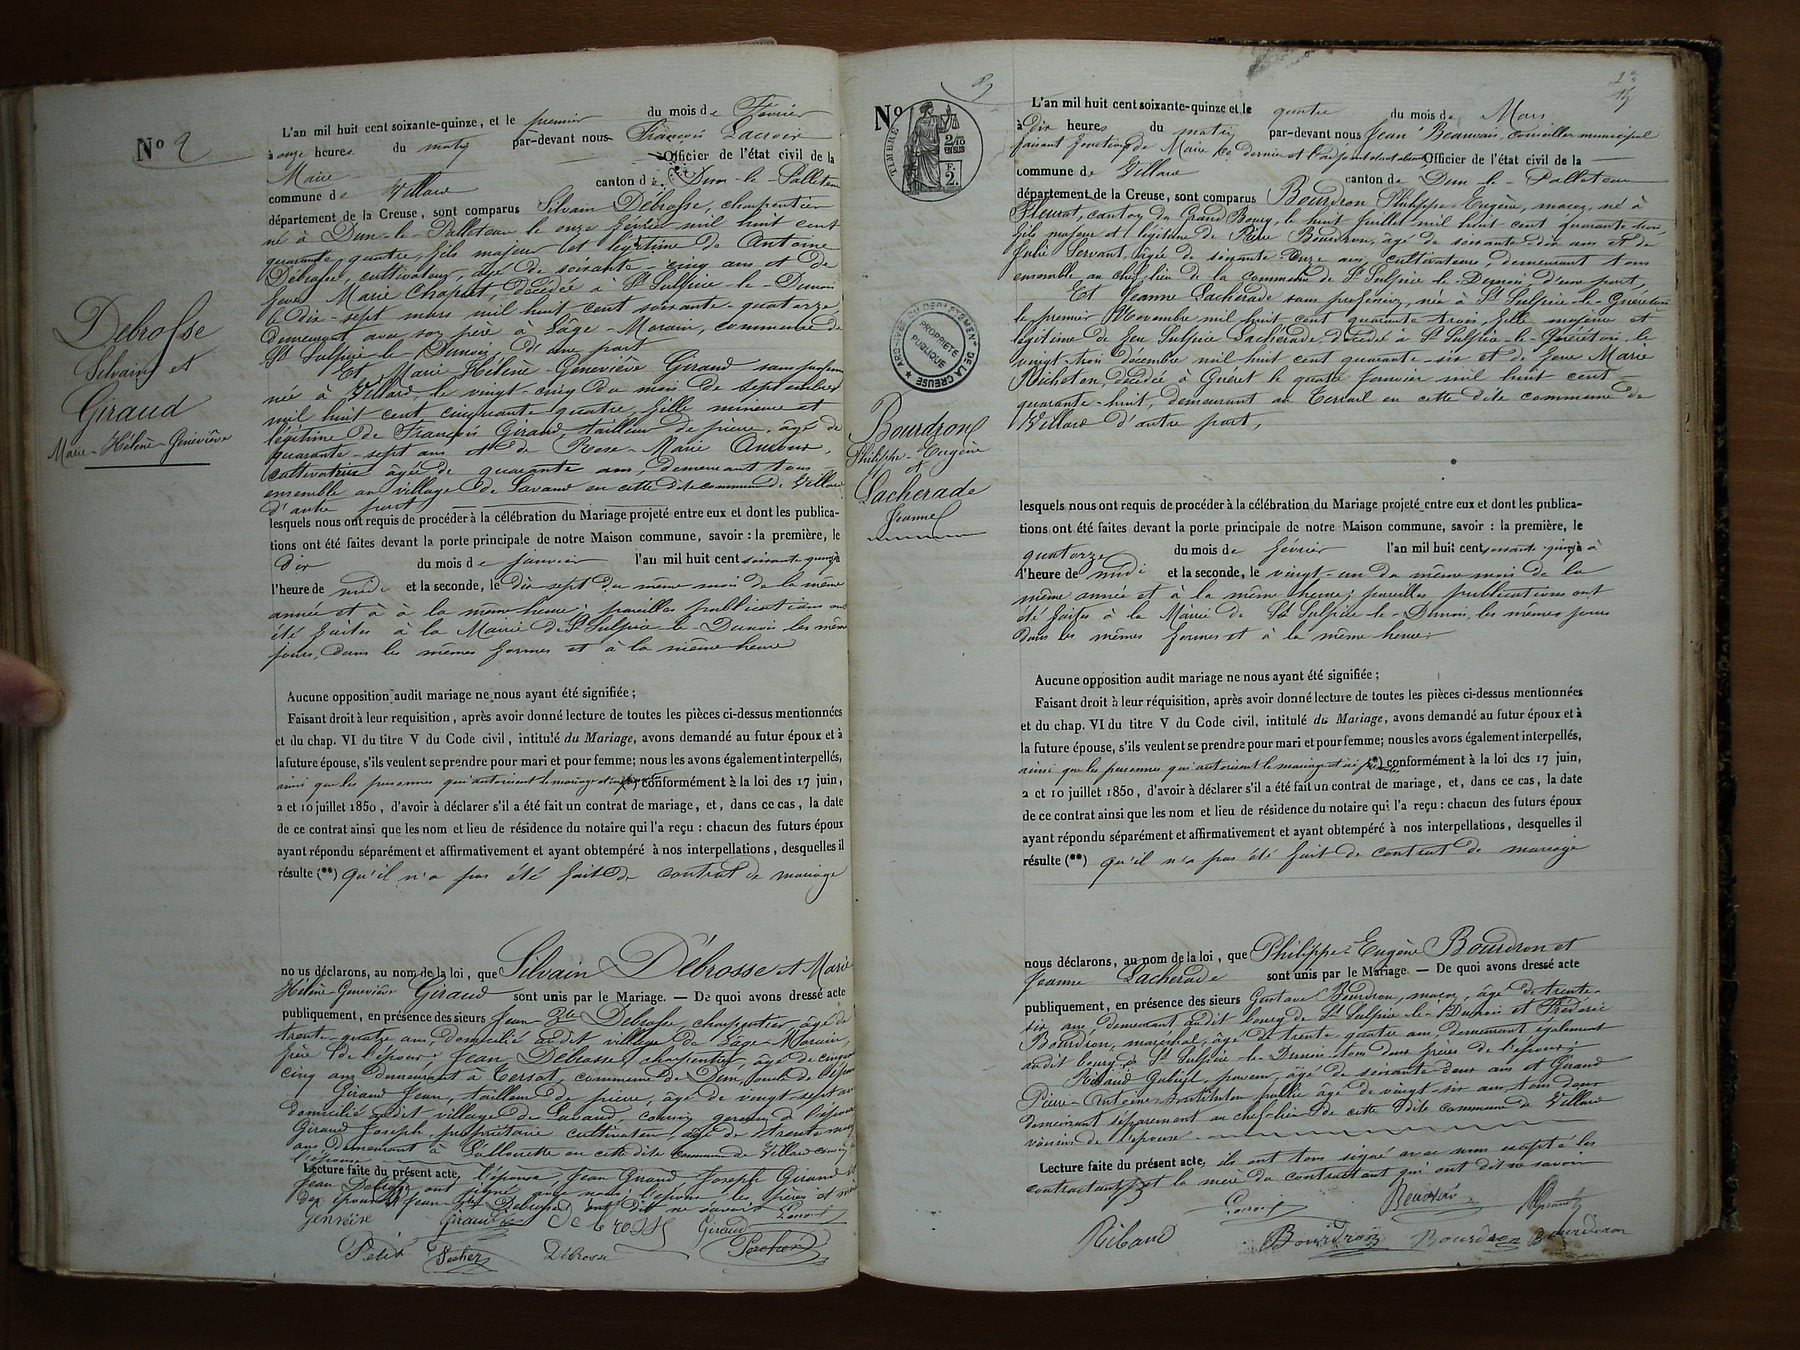 No 2
Debrosse
Silvain et
Giraud
Marie-Hélène-Geneviève
L'an mil huit cent soixante-quinze, et le premier du mois de Février
à onze heures du matin par-devant nous François Lacroix
Maire Officier de l'état civil de la
commune de Villard canton de Dun-le-Palleteau
département de la Creuse, sont comparus Silvain Débrosse, charpentier
né à Dun-le-Palleteau le onze février mil huit cent
quarante quatre, fils majeur et légitime de Antoine
Débrosse, cultivateur, âgé de soixante-cinq ans et de
feue Marie Chapuet, décédée à St Sulpice-le-Dunois
le dix-sept mars mil huit cent soixante-quatorze
demeurant avec son père à Lage-Morain, commune de
St Sulpice-le-Dunois, d'une part
Et Marie-Hélène-Geneviève Giraud sans profession
née à Villard, le vingt-cinq du mois de septembre
mil huit cent cinquante quatre, fille mineure et
légitime de François Giraud, tailleur de pierre, âgé de
quarante-sept ans et de Rose-Marie
cultivatrice âgée de quarante ans, demeurant tous
ensemble au village de Lavaud en cette dite commune de Villard
d'autre part
lesquels nous ont requis de procéder à la célébration du Mariage projeté entre eux et dont les publica-
tions ont été faites devant la porte principale de notre Maison commune, savoir : la première, le
dix du mois de janvier l'an mil huit cent soixante quinze à
l'heure de midi et la seconde, le dix sept du même mois de la même
année et à à la même heure; pareilles publications ont
été faites à la Mairie de St Sulpice-le-Dunois les mêmes
jours, dans les mêmes formes et à la même heure
Aucune opposition audit mariage ne nous ayant été signifiée ;
Faisant droit à leur requisition, après avoir donné lecture de toutes les pièces ci-dessus mentionnées
et du chap. VI du titre V du Code civil, intitulé du Mariage, avons demandé au futur époux et à
la future épouse, s'ils veulent se prendre pour mari et pour femme; nous les avons également interpellés,
ainsi que les personnes qui autorisent le mariage et ici présentes (*) conformément à la loi des 17 juin,
2 et 10 juillet 1850, d'avoir à déclarer s'il a été fait un contrat de mariage, et, dans ce cas, la date
de ce contrat ainsi que les nom et lieu de résidence du notaire qui l'a reçu : chacun des futurs époux
ayant répondu séparément et affirmativement et ayant obtempéré à nos interpellations, desquelles il
résulte (**) qu'il n'a pas été fait de contrat de mariage
nous déclarons, au nom de la loi, que Silvain Débrosse et Marie
Hélène-Geneviève Giraud sont unis par le Mariage. — De quoi avons dressé acte
publiquement, en présence des sieurs Jean Bte Debrosse, charpentier âgé de
trente-quatre ans, domicilié audit village de Lage-Morain,
frère de l'époux; Jean Debrosse charpentier, âgé de cinquante
cinq ans demeurant à Tersat, commune de Dun, oncle de l'époux
Giraud Jean, tailleur de pierre, âgé de vingt-sept ans
domicilié audit village de Lavaud, cousin germain de l'épouse
Giraud Joseph, propriétaire cultivateur, âgé de trente neuf
ans demeurant à en cette dite commune de Villard cousin de
l'épouse
Lecture faite du présent acte, l'épouse, Jean Giraud Joseph Giraud et
Jean Debrosse ont signé avec nous; l'époux les pères et mère
des époux et Jean Bte Debrosse ont dit ne savoir
Genvieve Giraud Debrosse Giraud Lacroix
Petit Pacher Débrosse
No 3
TIMBRE
2/10
EN SUS
F.
2.
ARCHIVES DU DÉPARTEMENT DE LA CREUSE
PROPRIÉTÉ
PUBLIQUE
Bourdron
Philippe-Eugène
et
Lacherade
Jeanne
L'an mil huit cent soixante-quinze et le quatre du mois de Mars
à dix heures du matin par-devant nous Jean Beauvais, conseiller municipal
faisant fonction de Maire ce dernier et l'adjoint étant absents Officier de l'état civil de la
commune de Villard canton de Dun-le-Palleteau
département de la Creuse, sont comparus Bourdron Philippe-Eugène, maçon, né à
Fleurat, canton du Grand Bourg, le huit juillet mil huit cent quarante-trois,
fils majeur et légitime de Pierre Bourdron, âgé de soixante dix ans et de
Julie Servant, âgée de soixante onze ans, cultivateurs, demeurant tous
ensemble au chef-lieu de la commune de St Sulpice-le-Dunois d'une part,
Et Jeanne Lacherade sans profession, née à St Sulpice-le-Guérétois
le premier Novembre mil huit cent quarante trois, fille majeure et
légitime de feu Sulpice Lacherade, décédé à St Sulpice-le-Guérétois, le
vingt-trois décembre mil huit cent quarante-six et de feue Marie
Richeton, décédée à Guéret le quatre janvier mil huit cent
quarante-huit, demeurant au Terrail en cette dite commune de
Villard d'autre part,
lesquels nous ont requis de procéder à la célébration du Mariage projeté entre eux et dont les publica-
tions ont été faites devant la porte principale de notre Maison commune, savoir : la première, le
quatorze du mois de février l'an mil huit cent soixante-quinze à
l'heure de midi et la seconde, le vingt-un du même mois de la
même année et à la même heure; pareilles publications ont
été faites à la Mairie de St Sulpice-le-Dunois, les mêmes jours
dans les mêmes formes et à la même heure
Aucune opposition audit mariage ne nous ayant été signifiée ;
Faisant droit à leur réquisition, après avoir donné lecture de toutes les pièces ci-dessus mentionnées
et du chap. VI du titre V du Code civil, intitulé du Mariage, avons demandé au futur époux et à
la future épouse, s'ils veulent se prendre pour mari et pour femme; nous les avons également interpellés,
ainsi que les personnes qui autorisent le mariage et ici présentes (*) conformément à la loi des 17 juin,
2 et 10 juillet 1850, d'avoir à déclarer s'il a été fait un contrat de mariage, et, dans ce cas, la date
de ce contrat ainsi que les nom et lieu de résidence du notaire qui l'a reçu : chacun des futurs époux
ayant répondu séparément et affirmativement et ayant obtempéré à nos interpellations, desquelles il
résulte (**) qu'il n'a pas été fait de contrat de mariage
nous déclarons, au nom de la loi, que Philippe-Eugène Bourdron et
Jeanne Lacherade sont unis par le Mariage. — De quoi avons dressé acte
publiquement, en présence des sieurs Gustave Bourdron, maçon, âgé de trente-
six ans demeurant audit bourg de St Sulpice-le-Dunois et Frédéric
Bourdron, maréchal, âgé de trente-quatre ans, demeurant également
audit bourg de St Sulpice-le-Dunois tous deux frères de l'époux;
Ribaud Gabriel, paveur, âgé de soixante-deux ans et Giraud
Pierre-Antoine instituteur public âgé de vingt-six ans, tous deux
demeurant séparément au chef-lieu de cette dite commune de Villard
voisins de l'épouse
Lecture faite du présent acte, ils ont tous signé avec nous excepté les
contractants et la mère du contractant qui ont dit ne savoir
Lacroix Beauvais Giraud
Ribaud Bourdron Bourdron Bourdron